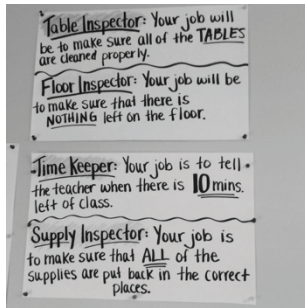 Table Inspector: Your job will
be to make sure all of the TABLES
are cleaned properly.
Floor Inspector: Your job will be
to make sure that there is
NOTHING left on the floor.
Time Keeper: Your job is to tell
the teacher when there is 10 mins.
left of class.
Supply Inspector: Your job is
to make sure that ALL of the
supplies are put back in the correct
places.